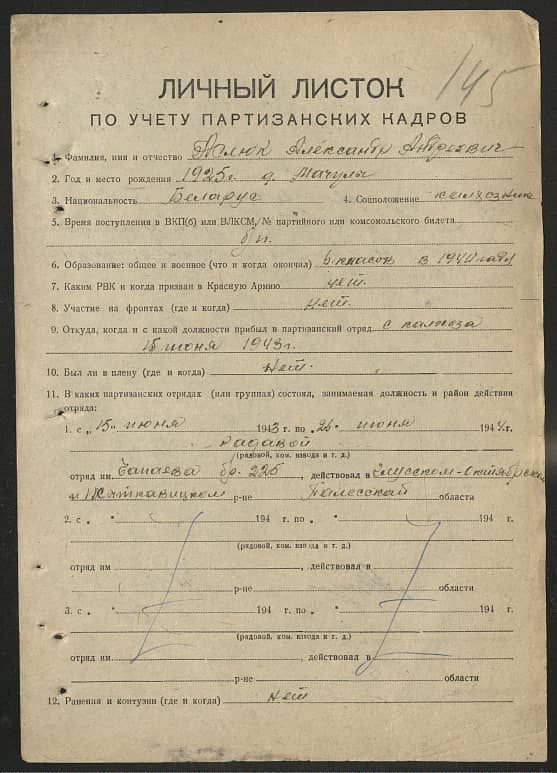 145
ЛИЧНЫЙ ЛИСТОК
ПО УЧЕТУ ПАРТИЗАНСКИХ КАДРОВ
1. Фамилия, имя и отчество Александр Андреевич
2. Год и место рождения 1925г. д. Мачулы
3. Национальность Беларус 4. Соцположение колхозник
5. Время поступления в ВКП(б) или ВЛКСМ, № партийного или комсомольского билета
б/п.
6. Образование: общее и военное (что и когда окончил) 6 класов в 1940
7. Каким РВК и когда призван в Красную Армию нет.
8. Участие на фронтах (где и когда) нет.
9. Откуда, когда и с какой должности прибыл в партизанский отряд с колхоза
15 июня 1943г.
10. Был ли в плену (где и когда) нет.
11. В каких партизанских отрядах (или группах) состоял, занимаемая должность и район действия
отряда:
1. с „15" июня 1943 г. по „26" июня 1944 г.
радавой
(рядовой, ком. взвода и т. д.)
отряд им Чапаева бр. 225, действовал в Глусском-Октябрьском
и Житкавицком р-не Полесской области
2. с „ " 194 г. по „ " 194 г.
(рядовой, ком. взвода и т. д.)
отряд им , действовал в
р-не области
3. с „ " 194 г. по „ " 194 г.
(рядовой, ком. взвода и т. д.)
отряд им , действовал в
р-не области
12. Ранения и контузии (где и когда) нет